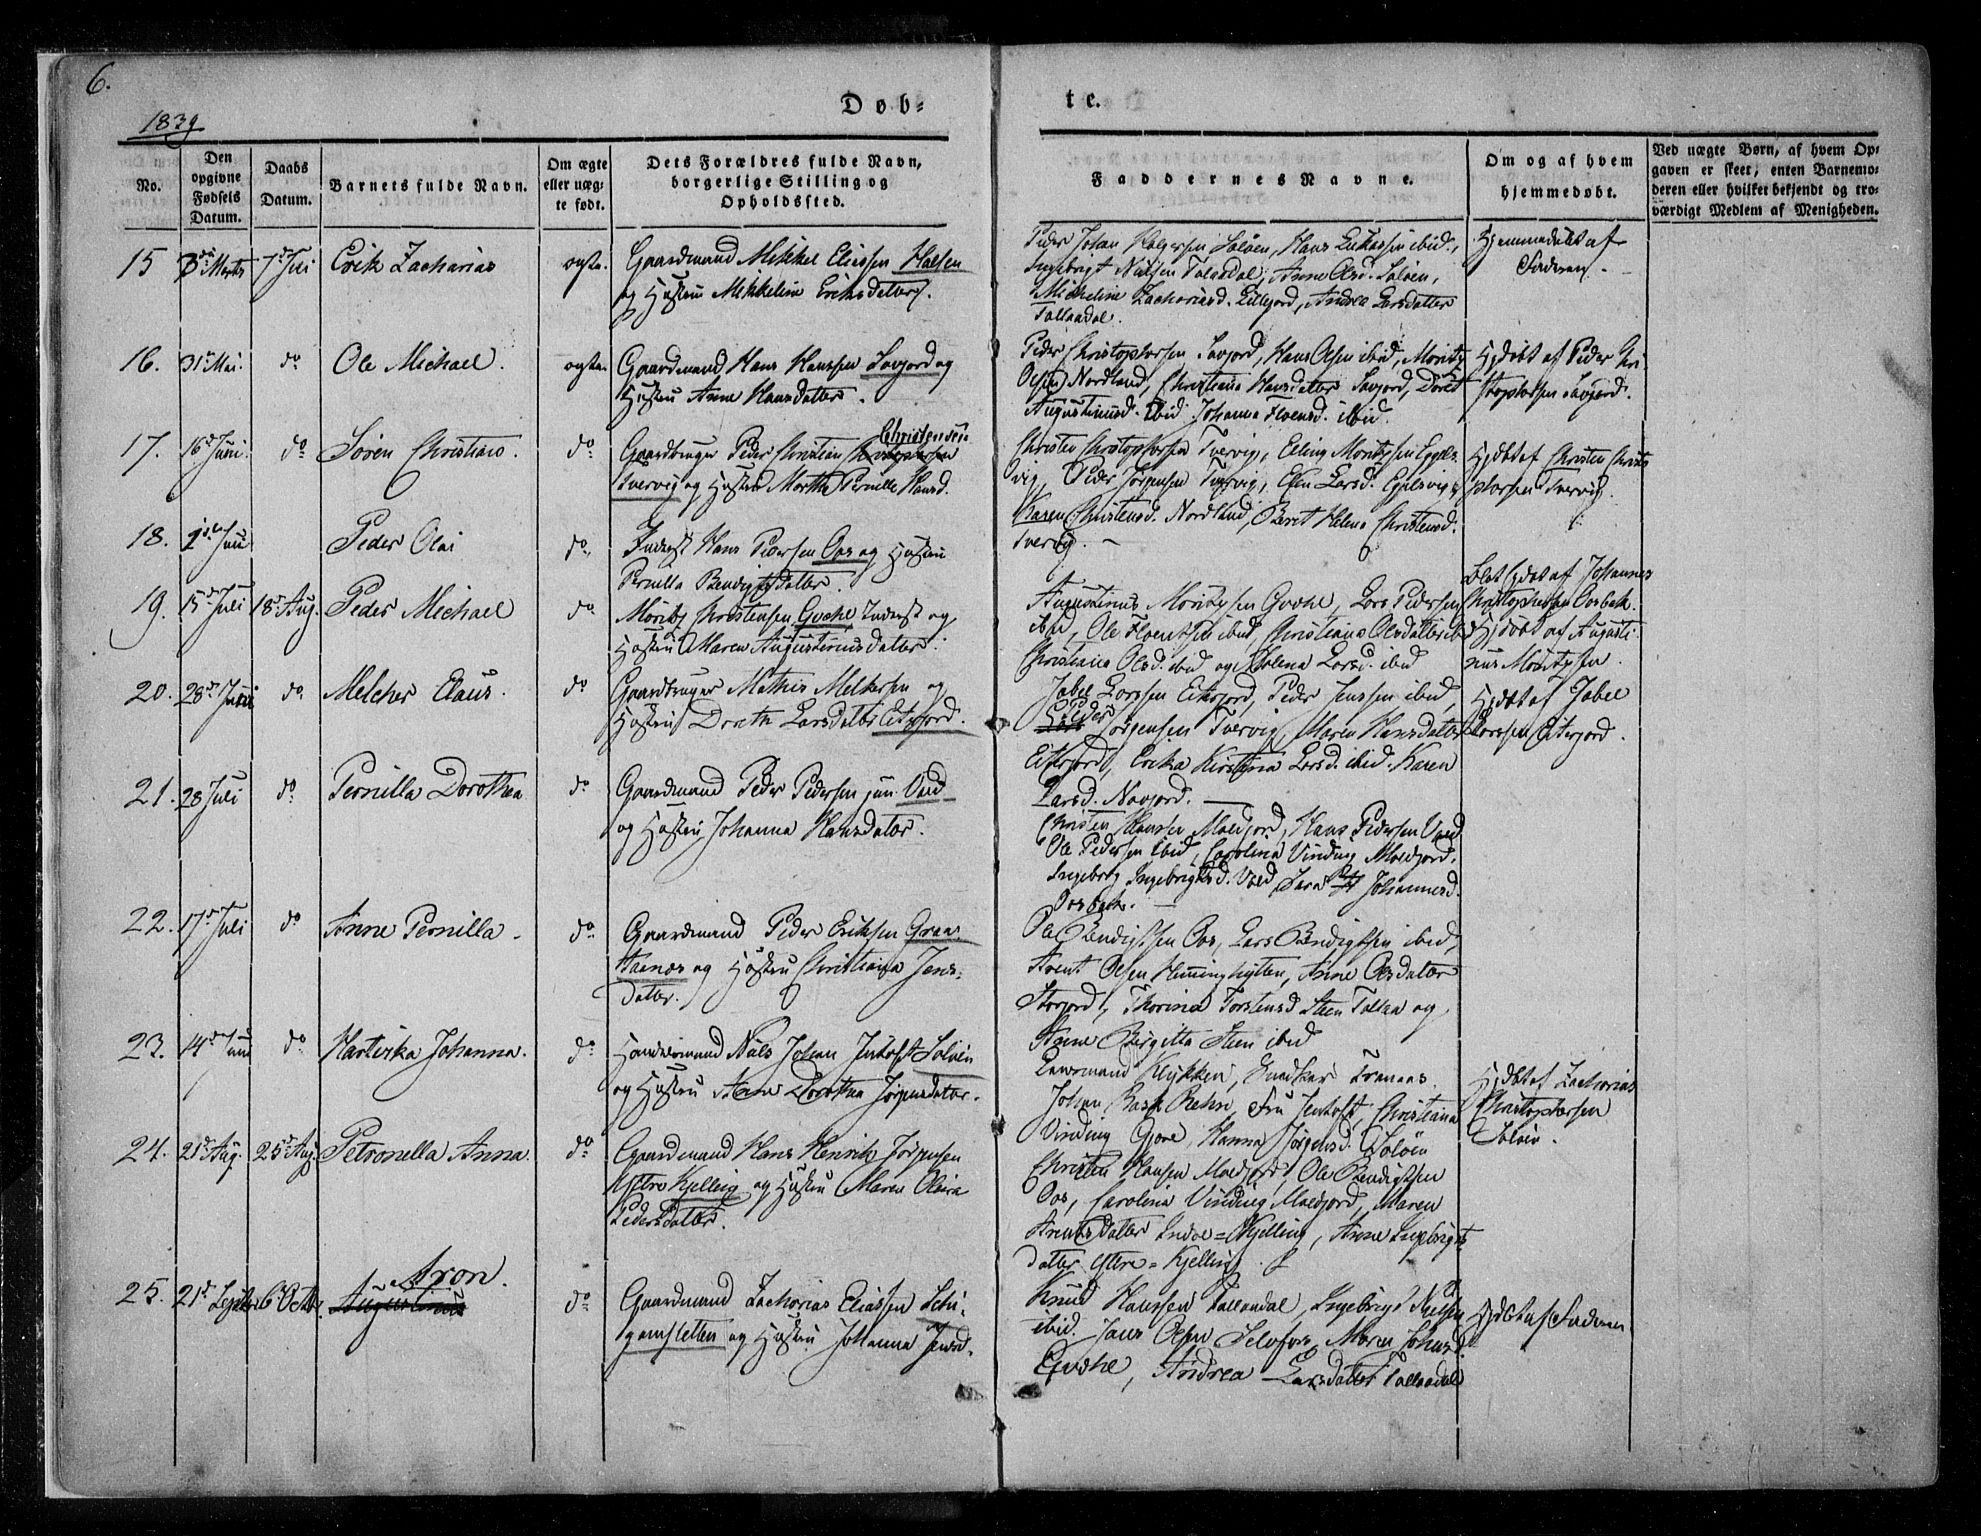 6.
Døb-
te.
1839
No.
Den opgivne Fødsels Datum.
Daabs Datum.
Barnets fulde Navn.
Om ægte eller uæg-te født.
Dets Forældres fulde Navn, borgerlige Stilling og Opholdssted.
Faddernes Navne.
Om og af hvem hjemmedøbt.
Ved uægte Børn, af hvem Op-
gaven er skeet; enten Barnemo-
deren eller hvilket bekjendt og tro-
værdigt Medlem af Menigheden.
15 7d Juli Erik Zacharias ægte. Gaardmand Mikkel Eliassen
og Hustru Mikkeline Eriksdatter.
Peder Johan Soløen, Hans ibid.,
Ingebrigt Nielsen Anne Olsd. Soløen,
Zachariasd. Lillejord, Andrea Larsdatter
Hjemmedøbt af
Faderen.
16. 31d Mai. do Ole Michael. ægte. Gaardmand Hans Hanssen Savjord og
Hustru Anne Hansdatter.
Peder Christophersen Savjord, Hans Olsen ibid, Moritz
Olsen Nordland, Christiana Hansdatter Savjord, Doret
Augustinusd. ibid. Johanna ibid.
Hjdøbt af Peder Chri-
stophersen Savjord.
17. 16d Juni. do Søren Christian. do Gaardbruger Peder Christian Christensen
Tvervig og Hustru Martha Pernille Hansd.
Christen Christophersen Tvervig, Elling Moritzsen Egels-
vig, Peder Jørgensen Tvervig, Elen Larsd. Egelsvig,
Karen Christensd. Nordland, Beret Helena Christensd.
Tvervig.
Hjdøbt af Christen Christo
phersen Tvervig.
18. Peder Olai do. Inderst Hans Pedersen Oos og Hustru
Pernilla Bendigtsdatter.
Blev hjdøbt af Johannes
Christophersen Oosbak.
19. 15d Juli 18d Aug. Peder Michael do Moritz Christensen Inderst og
Hustru Maren Augustinusdatter.
Augustinus Moritzsen Lars Pedersen
ibid, Ole ibid, Christiana Olsdatter ibid
Christiana Olsd. ibid og Helena Larsd. ibid
Hjdøbt af Augusti-
nus Moritzsen.
20. 28d do. Melcher Claus. do Gaardbruger Mathis Melkersen og
Hustru Dorath Larsdatter Eiterjord.
Jabel Larssen Eiterjord, Peder Jenssen ibid,
Peder Jørgensen Tvervig, Maren Hansdatter
Eiterjord, Erika Kirstina Larsd. ibid. Karen
Larsd. Navjord.
Hjdøbt af Jabel
Larssen Eiterjord.
21. 28 Juli do. Pernilla Dorothea do Gaardmand Peder Pedersen jun
og Hustru Johanna Hansdatter.
Christen Hanssen Moldjord, Hans Pedersen
Ole Pedersen ibid, Carolina Vinding Moldjord.
Ingeborg Ingebrigtsd. Sara Johannesd.
Oosbak.
22. 17d Juli do Anne Pernilla. do. Gaardmand Peder Eriksen Graa-
og Hustru Christiana Jens-
datter.
Ole Bendigtsen Oos, Lars Bendigtsen ibid,
Arent Olsen Anne Olsdatter
Storjord, Thorina Torstensd Steen og
Anne Birgitta Steen ibid
23. 14d Juni do. Hartvika Johanna. do Handelsmand Niels Johan Jentoft Soløen
og Hustru Anne Dorothea Jørgensdatter.
Lensmand Klykken,
Johan Fru Jentoft, Christiana
Vinding Hanna Jørgensd. Soløen
Hjdøbt af Zacharias
Christophersen
Soløen.
24. 21d Aug. 25d Aug. Petronella Anna. do Gaardmand Hans Henrik Jørgensen
Yttre Kjelling og Hustru Maren Olava
Pedersdatter.
Christen Hansen Moldjord, Ole Bendigtsen
Oos, Carolina Vinding Moldjord, Maren
Arentsdatter Indre-Kjelling, Anne Ingebrigts-
datter Yttre-Kjelling.
25. 21d Septbr 6d Octbr. Augustinus Aron. do Gaardmand Zacharias Eliassen
og Hustru Johanna Jensd.
Knud Hanssen Ingebrigt Nielsen
ibid. Jens Olsen Maren Johnsd.
Andrea Larsdatter
Hjdøbt af Faderen